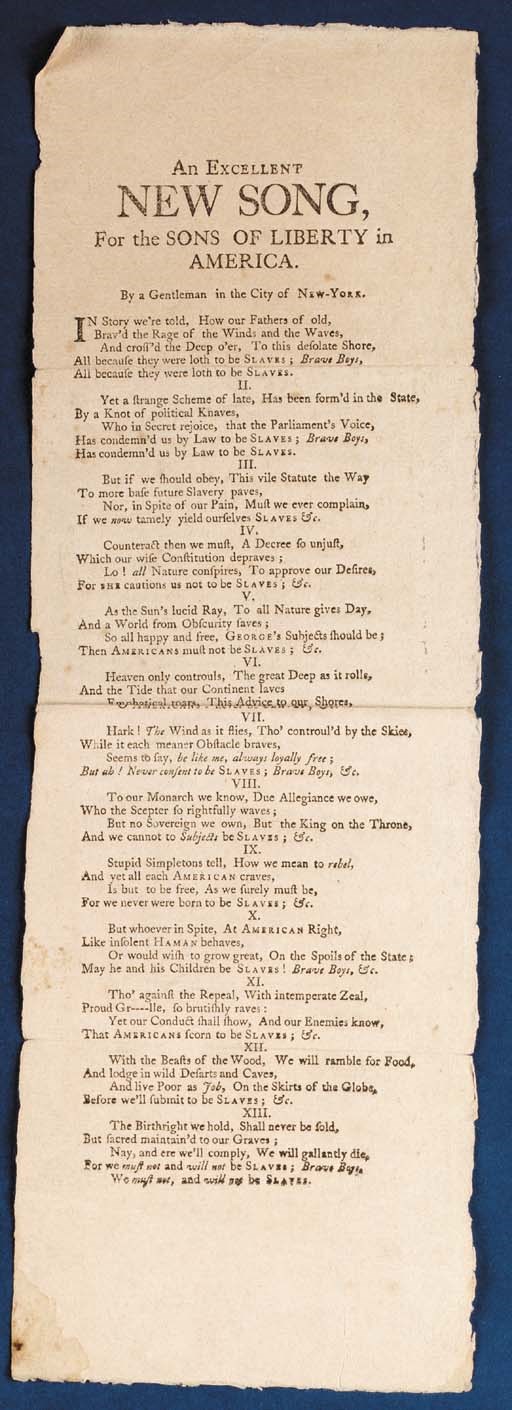 An Excellent
NEW SONG,
For the SONS OF LIBERTY in
AMERICA.
By a Gentleman in the City of New-York.
IN Story we're told, How our Fathers of old,
Brav'd the Rage of the Winds and the Waves,
And croſſ'd the Deep o'er, To this deſolate Shore,
All becauſe they were loth to be Slaves; Brave Boys,
All becauſe they were loth to be Slaves.
II.
Yet a ſtrange Scheme of late, Has been form'd in the State,
By a Knot of political Knaves,
Who in Secret rejoice, that the Parliament's Voice,
Has condemn'd us by Law to be Slaves; Brave Boys,
Has condemn'd us by Law to be Slaves.
III.
But if we ſhould obey, This vile Statute the Way
To more baſe future Slavery paves,
Nor, in Spite of our Pain, Muſt we ever complain,
If we now tamely yield ourſelves Slaves &c.
IV.
Counteract then we muſt, A Decree ſo unjuſt,
Which our wiſe Conſtitution depraves;
Lo! all Nature conſpires, To approve our Deſires,
For she cautions us not to be Slaves; &c.
V.
As the Sun's lucid Ray, To all Nature gives Day,
And a World from Obſcurity ſaves;
So all happy and free, George's Subjects ſhould be;
Then Americans muſt not be Slaves; &c.
VI.
Heaven only controuls, The great Deep as it rolls,
And the Tide that our Continent laves
Emphatical roars, This Advice to our Shores,
VII.
Hark! The Wind as it flies, Tho' controul'd by the Skies,
While it each meaner Obſtacle braves,
Seems to ſay, be like me, always loyally free;
But ah! Never conſent to be Slaves; Brave Boys, &c.
VIII.
To our Monarch we know, Due Allegiance we owe,
Who the Scepter ſo rightfully waves;
But no Sovereign we own, But the King on the Throne,
And we cannot to Subjects be Slaves; &c.
IX.
Stupid Simpletons tell, How we mean to rebel,
And yet all each American craves,
Is but to be free, As we ſurely muſt be,
For we never were born to be Slaves; &c.
X.
But whoever in Spite, At American Right,
Like inſolent Haman behaves,
Or would wiſh to grow great, On the Spoils of the State;
May he and his Children be Slaves! Brave Boys, &c.
XI.
Tho' againſt the Repeal, With intemperate Zeal,
Proud Gr----lle, ſo brutiſhly raves:
Yet our Conduct ſhall ſhow, And our Enemies know,
That Americans ſcorn to be Slaves; &c.
XII.
With the Beaſts of the Wood, We will ramble for Food,
And lodge in wild Deſarts and Caves,
And live Poor as Job, On the Skirts of the Globe,
Before we'll ſubmit to be Slaves; &c.
XIII.
The Birthright we hold, Shall never be ſold,
But ſacred maintain'd to our Graves;
Nay, and ere we'll comply, We will gallantly die,
For we muſt not and will not be Slaves; Brave Boys,
We muſt not, and will not be Slaves.